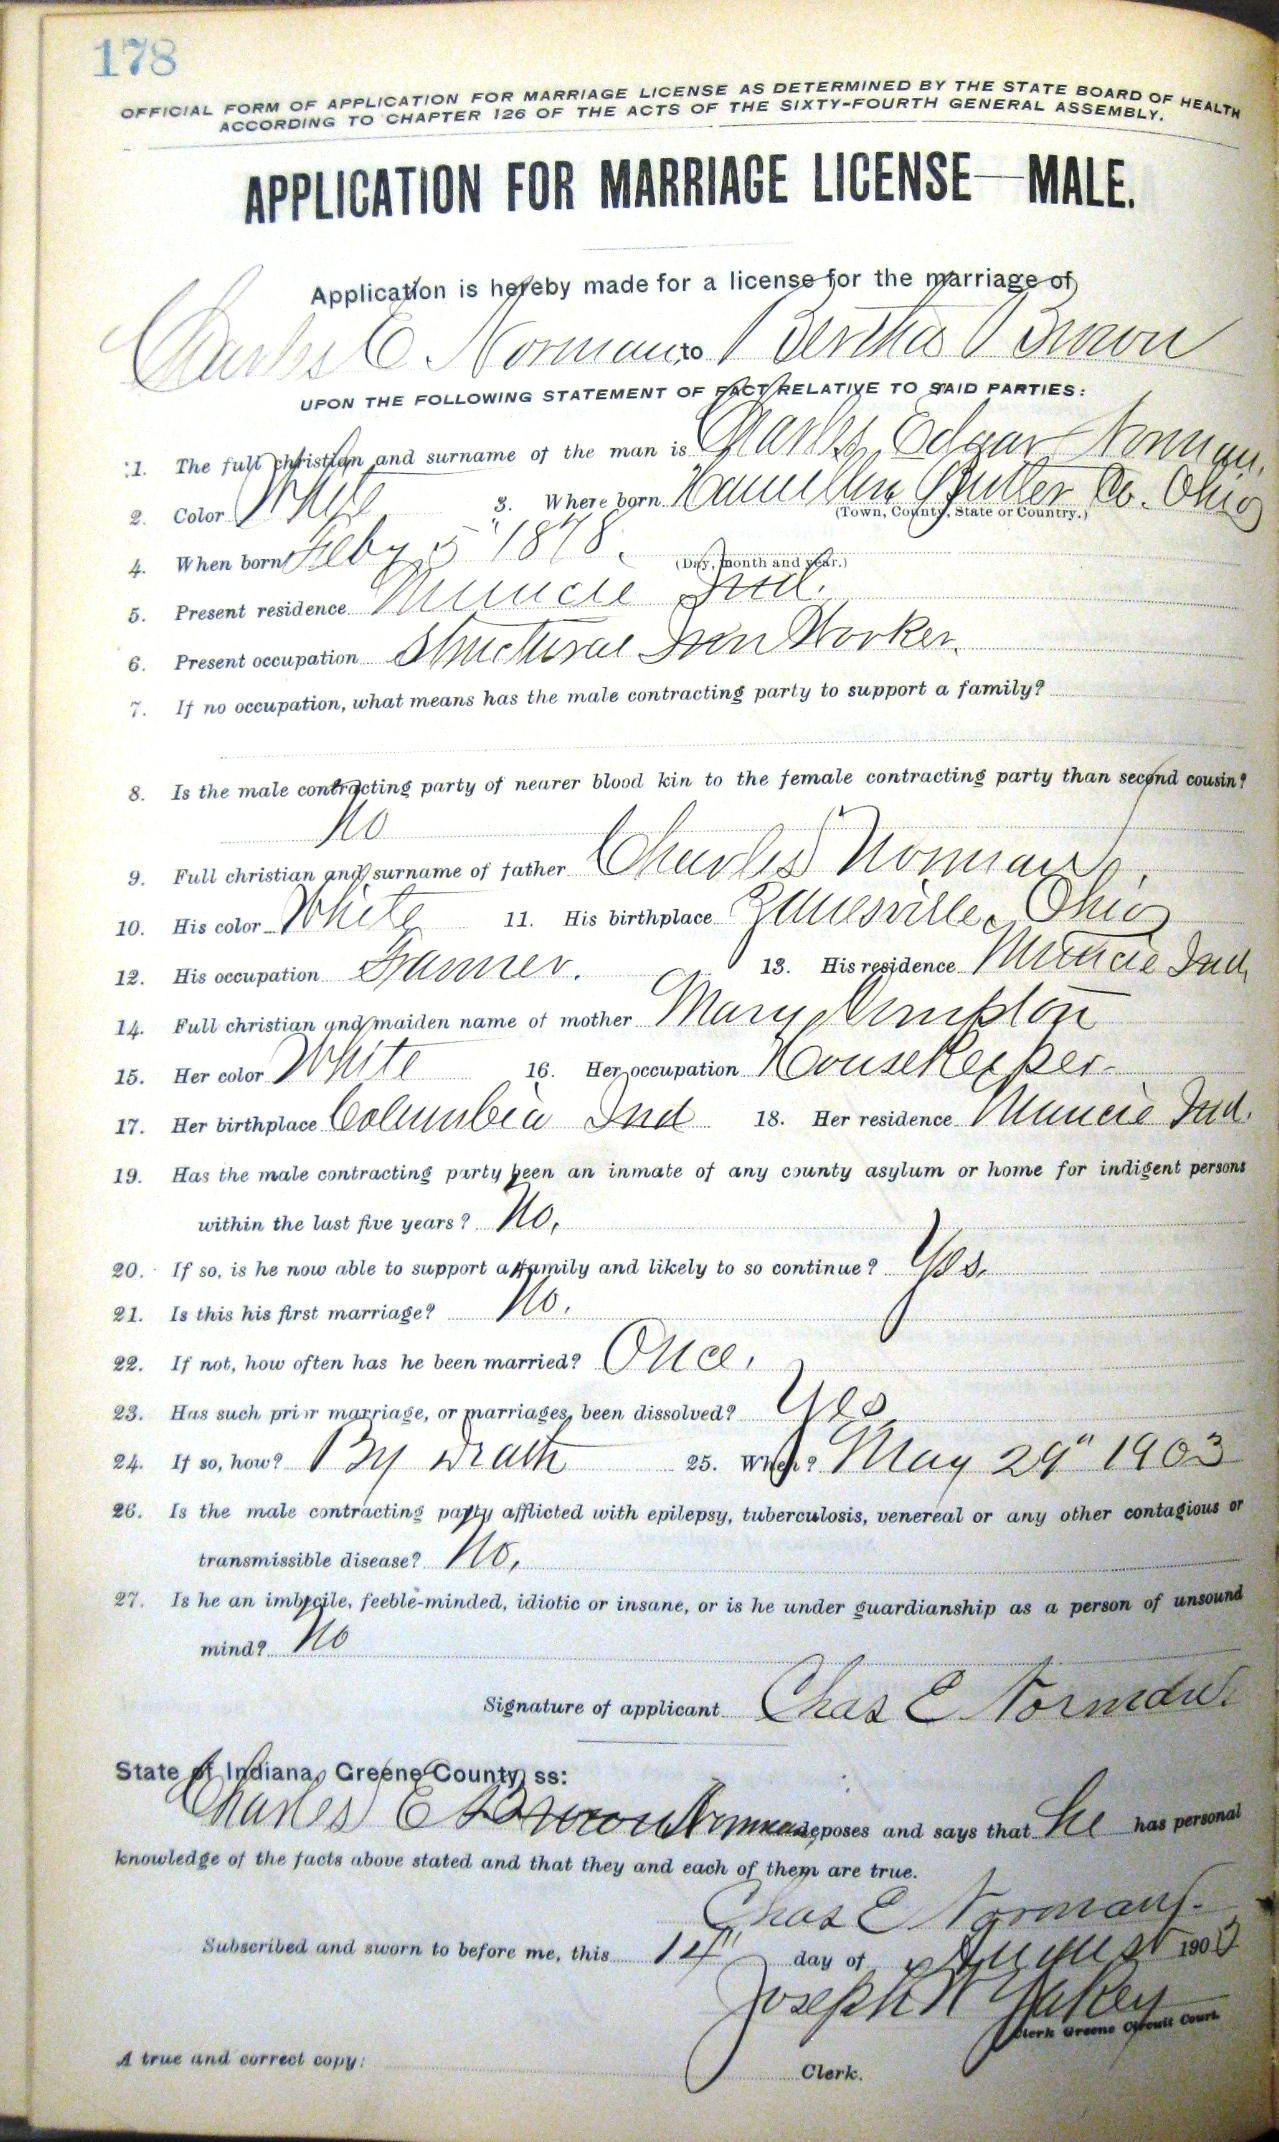 178
OFFICIAL FORM OF APPLICATION FOR MARRIAGE LICENSE AS DETERMINED BY THE STATE BOARD OF HEALTH
ACCORDING TO CHAPTER 126 OF THE ACTS OF THE SIXTY-FOURTH GENERAL ASSEMBLY.
APPLICATION FOR MARRIAGE LICENSE—MALE.
Application is hereby made for a license for the marriage of
Charles E. Norman to Bertha Brown
UPON THE FOLLOWING STATEMENT OF FACT RELATIVE TO SAID PARTIES:
1. The full christian and surname of the man is Charles Edgar Norman.
2. Color White 3. Where born Hamilton Butler Co. Ohio
(Town, County, State or Country.)
4. When born Feby 5" 1878. (Day, month and year.)
5. Present residence Muncie Ind.
6. Present occupation Structural Iron Worker.
7. If no occupation, what means has the male contracting party to support a family?
8. Is the male contracting party of nearer blood kin to the female contracting party than second cousin?
No
9. Full christian and surname of father Charles Norman.
10. His color White 11. His birthplace Zanesville, Ohio
12. His occupation Farmer. 13. His residence Muncie Ind
14. Full christian and maiden name of mother Mary
15. Her color White 16. Her occupation Housekeeper
17. Her birthplace Columbia Ind 18. Her residence Muncie Ind.
19. Has the male contracting party been an inmate of any county asylum or home for indigent persons
within the last five years? No.
20. If so, is he now able to support a family and likely to so continue? Yes.
21. Is this his first marriage? No.
22. If not, how often has he been married? Once.
23. Has such prior marriage, or marriages, been dissolved? Yes
24. If so, how? By Death 25. When? May 29" 1903
26. Is the male contracting party afflicted with epilepsy, tuberculosis, venereal or any other contagious or
transmissible disease? No.
27. Is he an imbecile, feeble-minded, idiotic or insane, or is he under guardianship as a person of unsound
mind? No
Signature of applicant Chas E Norman
State of Indiana, Greene County, ss:
Charles E Brown Norman deposes and says that he has personal
knowledge of the facts above stated and that they and each of them are true.
Chas E Norman
Subscribed and sworn to before me, this 14" day of August 190
Joseph W Yakey
Clerk Greene Circuit Court.
A true and correct copy: Clerk.